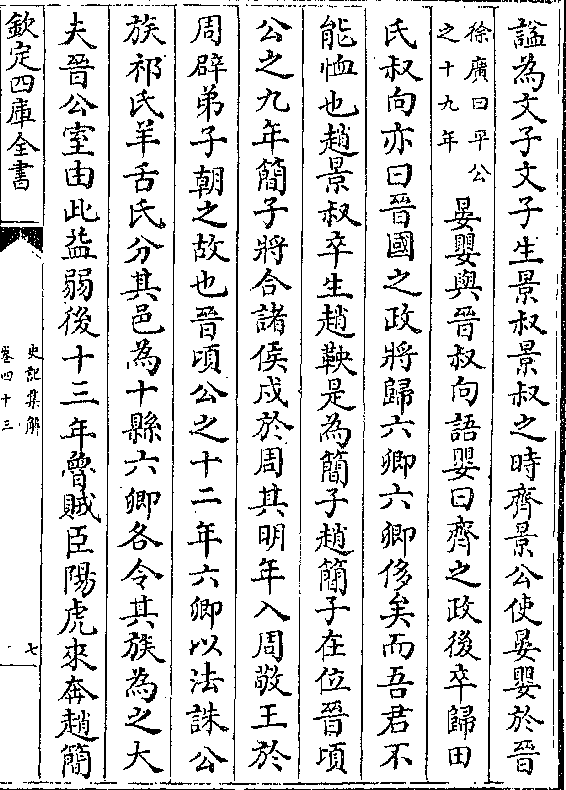 諡為文子文子生景叔景叔之時齊景公使晏嬰於晉
徐廣曰平公
之十九年
晏嬰與晉叔向語嬰曰齊之政後卒歸田
氏叔向亦曰晉國之政將歸六卿六卿侈矣而吾君不
能恤也趙景叔卒生趙鞅是為簡子趙簡子在位晉頃
公之九年簡子將合諸侯戍於周其明年入周敬王於
周辟弟子朝之故也晉頃公之十二年六卿以法誅公
族祁氏羊舌氏分其邑為十縣六卿各令其族為之大
夫晉公室由此益弱後十三年魯賊臣陽虎來奔趙簡
欽定四庫全書
史記集解
卷四十三
七